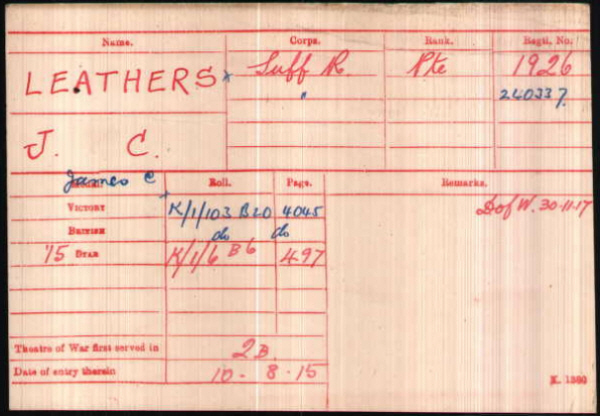 Name. Corps. Rank. Regtl. No.
LEATHERS x Suff R Pte 1926
" 240337.
J. C.
James C
Roll. Page. Remarks.
VICTORY K/1/103 B20 4045 D of W. 30-11-17
BRITISH do do
'15 STAR K/1/6 B6 497
Theatre of War first served in 2B.
Date of entry therein 10-8-15
K. 1380